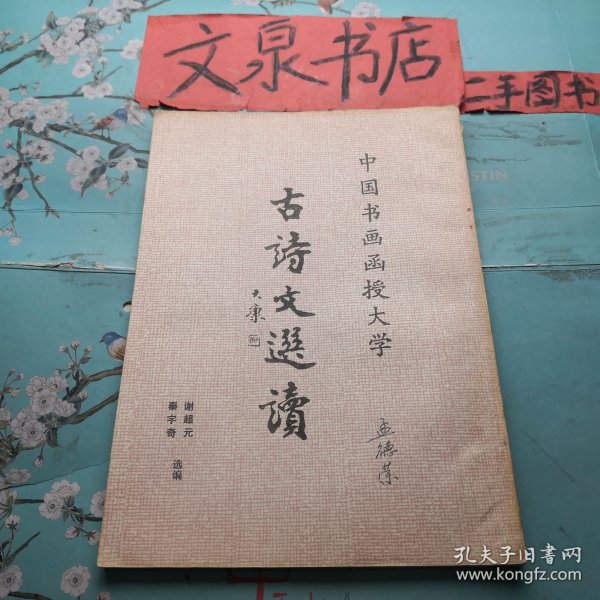 文泉书店
二手图书
STIN
中国书画函授大学
古詩文選讀
大康
谢超元
秦宇奇
选编
孟德荣
孔夫子旧书网
www.kongfz.com